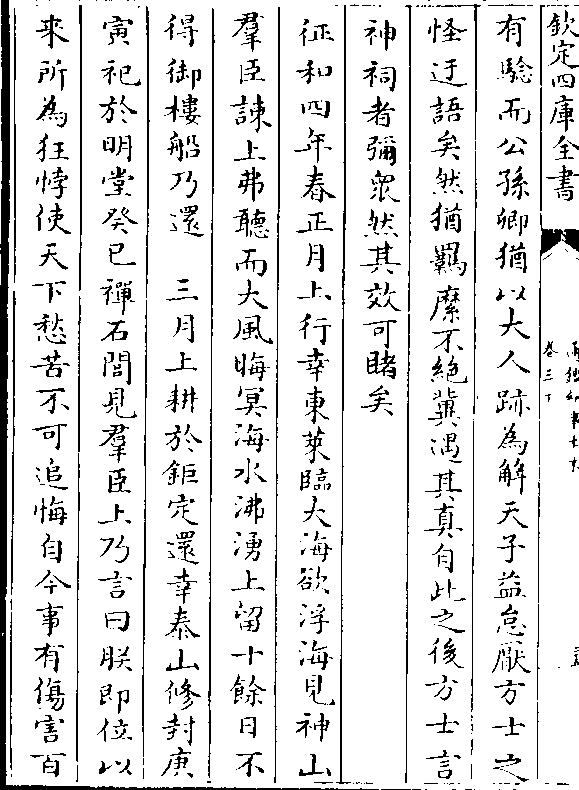 欽定四庫全書
卷三下
有驗而公孫卿猶以大人跡為解天子益怠厭方士之
怪迂語矣然猶羈縻不絶兾遇其真自此之後方士言
神祠者彌衆然其效可睹矣
征和四年春正月上行幸東萊臨大海欲浮海見神山
羣臣諫上弗聽而大風晦冥海水沸湧上留十餘日不
得御樓船乃還　三月上耕於鉅定還幸泰山修封庚
寅祀於明堂癸巳禪石閭見羣臣上乃言曰朕即位以
来所為狂悖使天下愁苦不可追悔自今事有傷害百